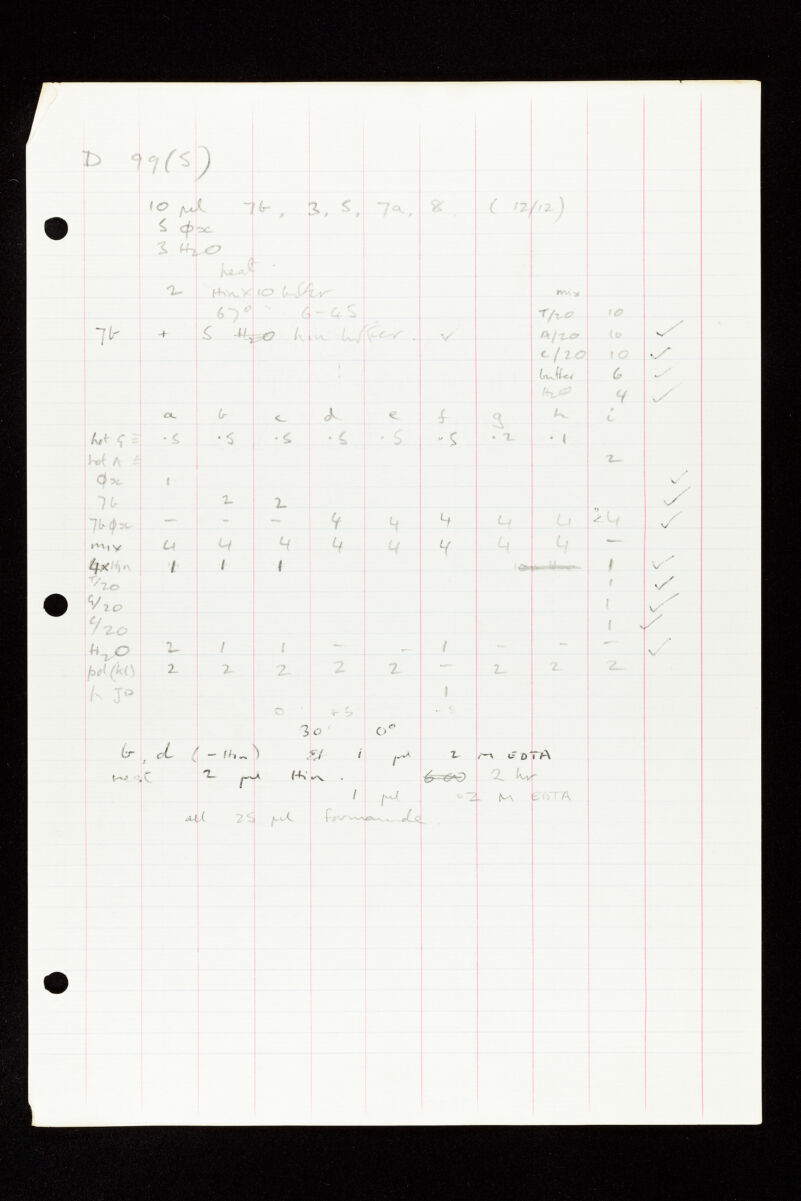 D 99(S)
10 µl 7b, 3, 5, 7a, 8. (12/12)
5 φx
3 H2O
heat
2 Hin x 10 buffer
mix
67° 6-45
T/20 10
7b + 5 H2O hin buffer. ✓
A/20 10 ✓
C/20 10 ✓
buffer 6 ✓
H2O 4 ✓
a b c d e f g h i
hot G = .5 .5 .5 .5 .5 .5 .2 .1
hot A = 2
φx 1 ✓
7b 2 2 ✓
7bφx - - - 4 4 4 4 4 4 ✓
mix 4 4 4 4 4 4 4 4 -
4x Hin 1 1 1 1 ✓
T/20 1 ✓
G/20 1 ✓
C/20 1 ✓
H2O 2 1 1 - - 1 - - - ✓
pol (kl) 2 2 2 2 2 - 2 2 2
1
0 +5 .5
30' 0°
b, d (-Hin) 1 µl 2 M EDTA
2 µl Hin. 2 hr
1 µl .2 M EDTA
all 25 µl formamide.